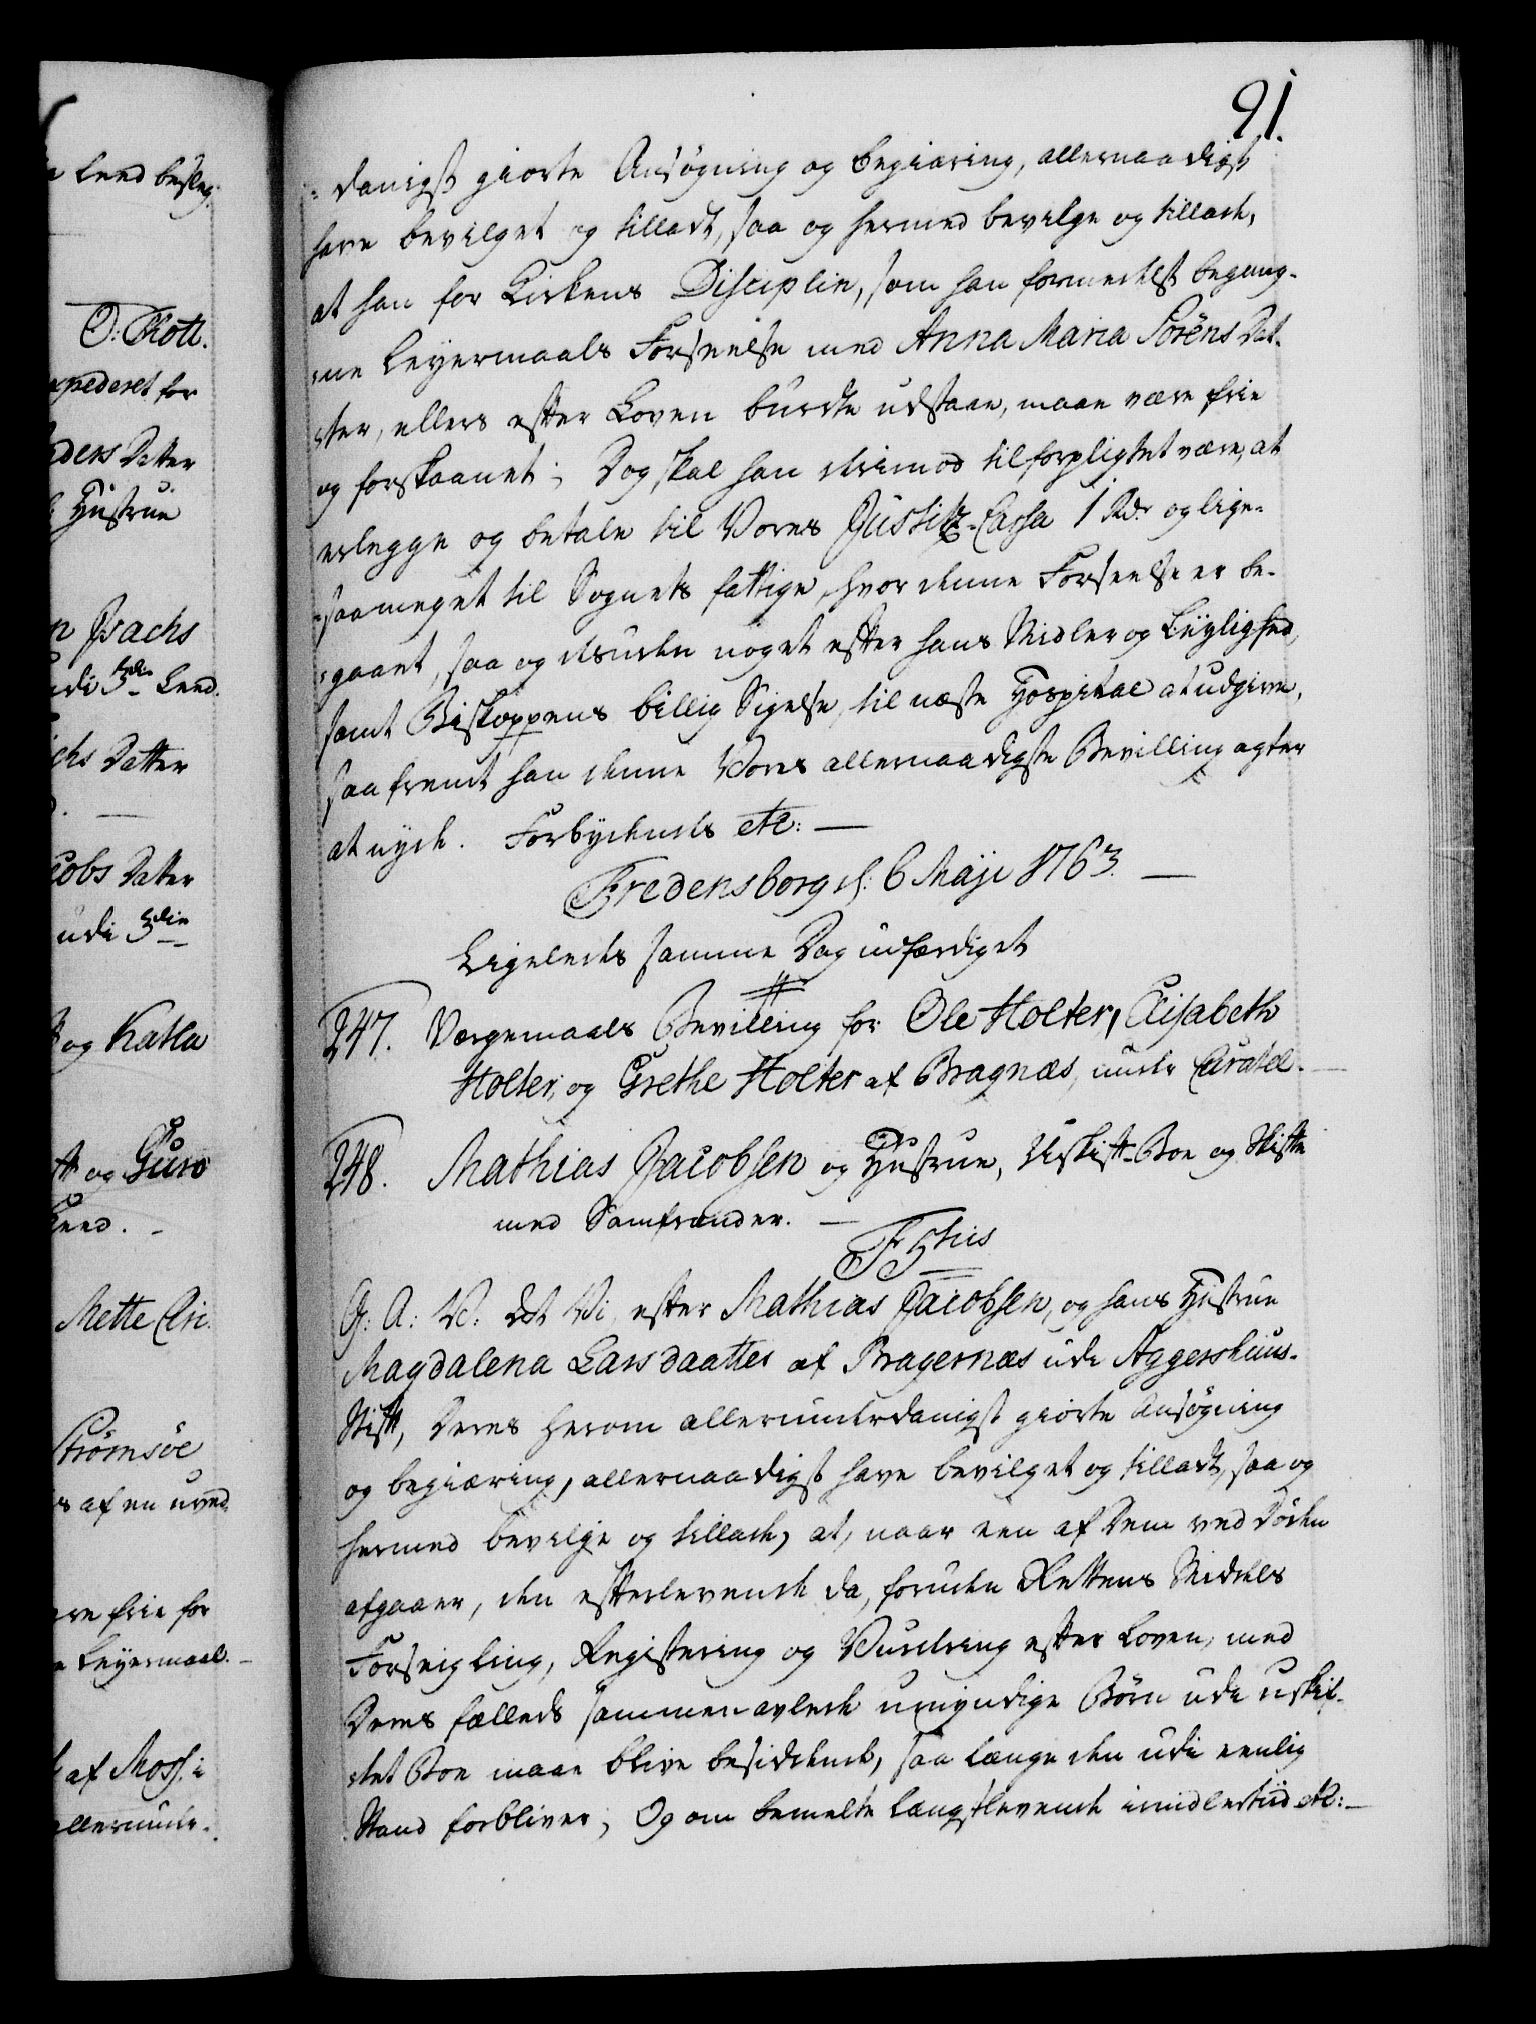 91.
-danigst giorte Ansøgning og begiæring, allernaadigst
have bevilget og tilladt, saa og hermed bevilge og tillade,
at han for Kirkens Disciplin, som han formedelst begang-
-ne Leyermaals Forseelse med Anna Maria Sørens Dat-
-ter, ellers efter Loven burde udstaae, maae være frie
og forskaanet; Dog skal han derimod tilforpligtet være, at
erlegge og betale til Vores Justitz-Cassa 1 Rdr og lige-
-saameget til Sognets fattige, hvor denne Forseelse er be-
-gaaet, saa og desuden noget efter hans Midler og Leylighed,
samt Biskoppens billig Sigelse, til næste Hospital at udgive,
saa fremt han denne Vores allernaadigste Bevilling agter
at nyde. Forbydendes etc: —
Fredensborg d: 6 Maji 1763. —
Ligeledes samme Dag udfærdiget
247. Vergemaals Bevilling for Ole Holter, Elisabeth
Holter, og Grethe Holter af Bragnæs, under Curatel. —
248. Mathias Jacobsen og Hustrue, Uskift-Boe og Skifte
med Samfrænder. —
F 5tus
G: A: V: At Vi, efter Mathias Jacobsen, og hans Hustrue
Magdalena Larsdaatter af Bragernæs udi Aggershuus-
Stift, Deres herom allerunderdanigst giorte Ansøgning
og begiæring, allernaadigst have bevilget og tilladt, saa og
hermed bevilge og tillade, at, naar een af Dem ved Døden
afgaaer, den efterlevende da, foruden Rettens Middels
Forseigling, Registering og Vurdering efter Loven, med
Deres fælleds sammenavlede umyndige Børn udi uskif-
-tet Boe maae blive besiddende, saa længe den udi eenlig
Stand forbliver; Og om bemelte længstlevende imidlertiid etc: —